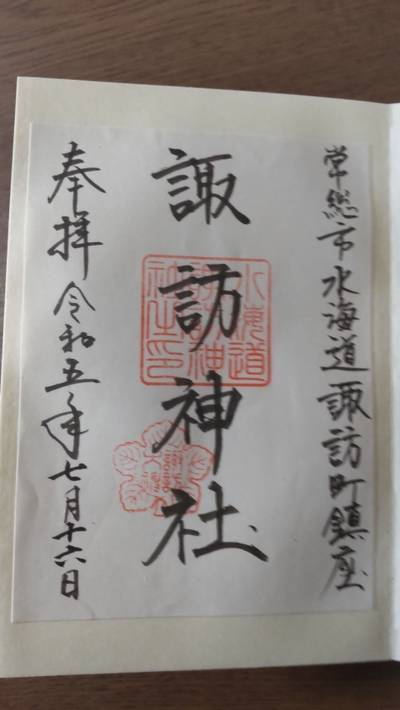 常総市水海道諏訪町鎮座
諏訪神社
奉拝 令和五年七月十六日
水海道
諏訪神
社之印